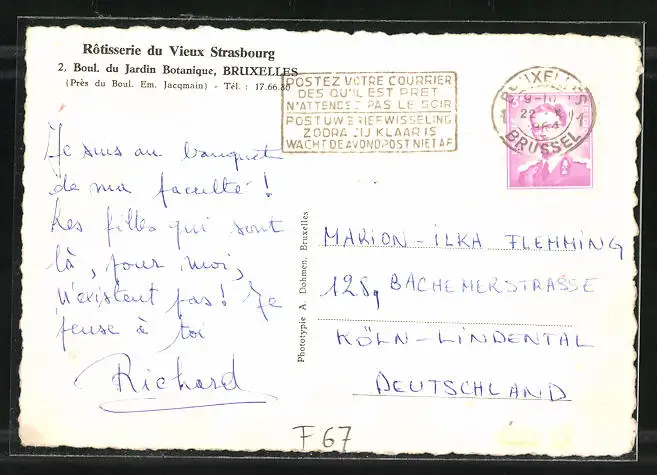 Rôtisserie du Vieux Strasbourg
2, Boul. du Jardin Botanique, BRUXELLES
(Près du Boul. Em. Jacqmain) - Tél. : 17.66.80
POSTEZ VOTRE COURRIER
DES QU'IL EST PRET
N'ATTENDEZ PAS LE SOIR
POST UW BRIEFWISSELING
ZODRA ZIJ KLAAR IS
WACHT DE AVONDPOST NIET AF
BRUXELLES
BRUSSEL
Je suis au banquet
de ma faculté !
Les filles qui sont
là, pour moi,
n'existent pas ! Je
pense à toi
Richard
Phototypie A. Dohmen, Bruxelles
MARION-ILKA FLEMMING
128g BACHEMERSTRASSE
KÖLN-LINDENTAL
DEUTSCHLAND
F 67